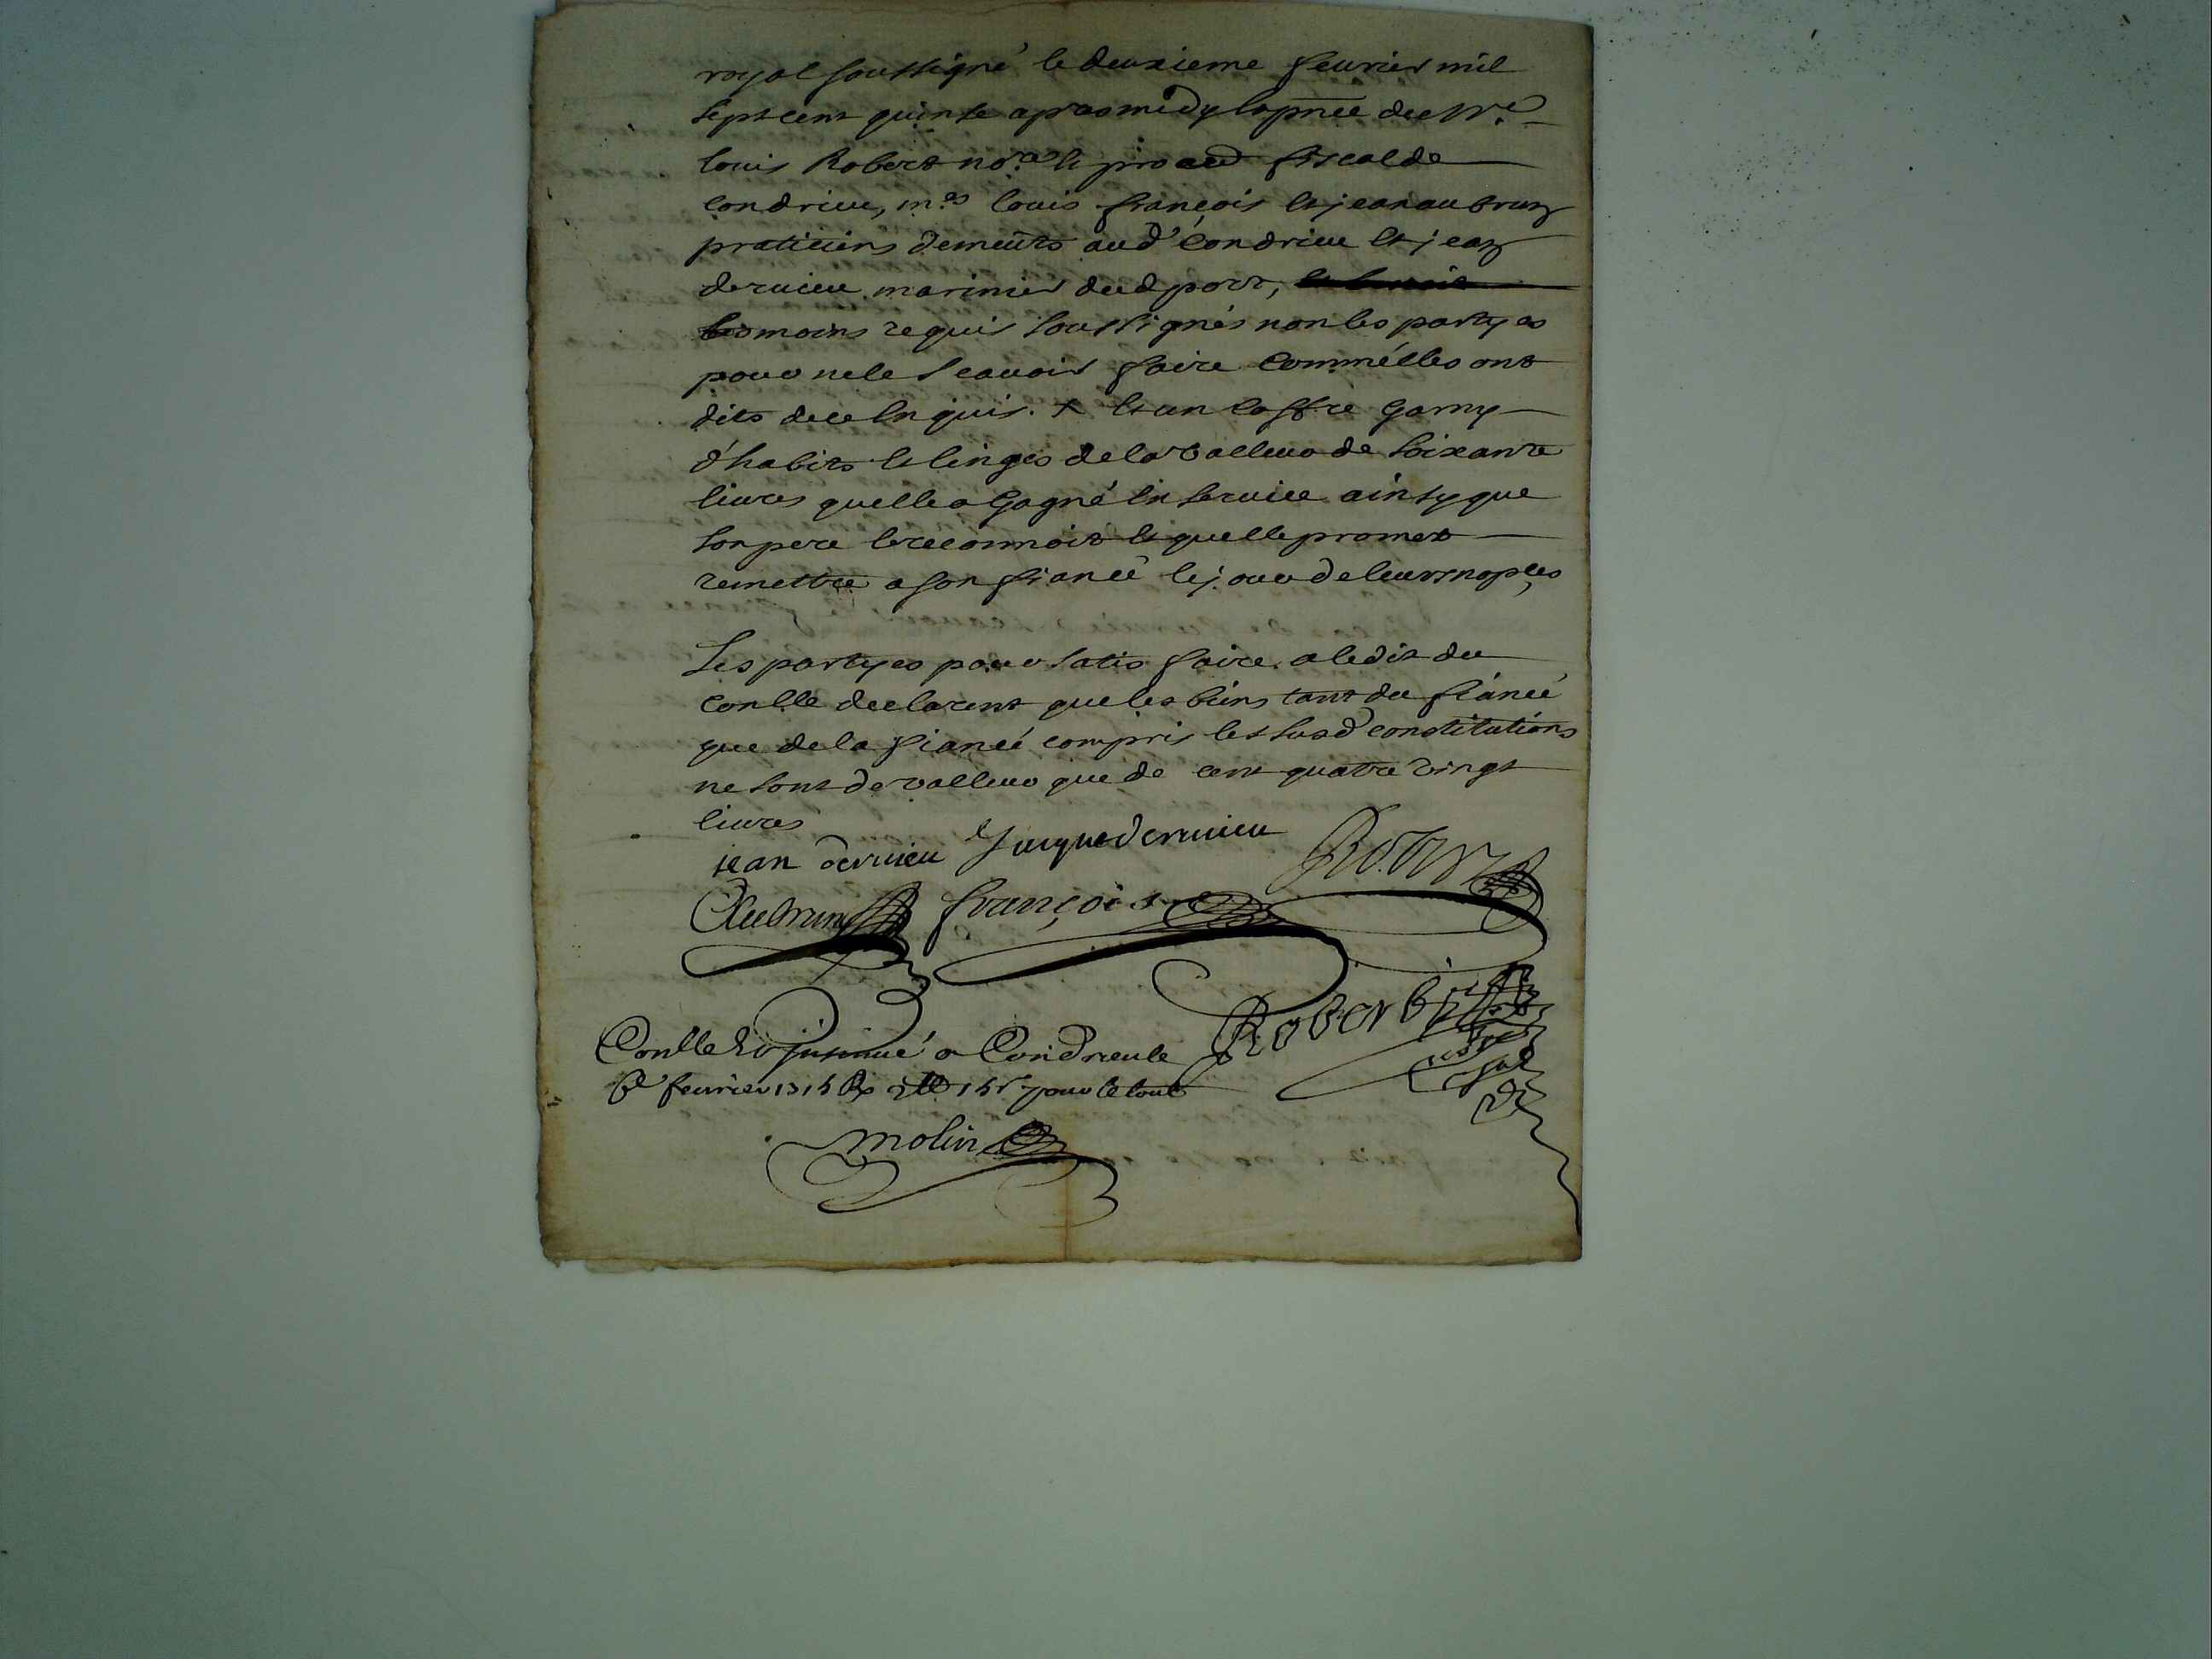 royal soussigné le deuxieme feurier mil
sept cent quinze apres midy la pnce de Mre
louis Robert nore & procd fiscal de
condrieu, mes louis françois & jean aubrun
praticiens demeurts aud condrieu & jean
deruieu marinier dud port,
temoins requis soussignés non les partyes
pour ne le scauoir faire comm'elles ont
dits de ce enquis. + & un coffre garny
d'habits & linges de la valleur de soixante
liures quelle a gagné en seruice ainsy que
son pere le reconnoit & quelle promet
remettre a son fiancé le jour de leurs nopces,
Les partyes pour satisfaire a ledit du
conlle declarent que les biens tant du fiancé
que de la fiancée compris les susd constitutions
ne sont de valleur que de cent quatre vingt
liures
jean deruieu Jacque deruieu Robert
Aubrun françois
Robert
Conlle & insinué a Condrieu le
feurier 1715 pour le tout
molin